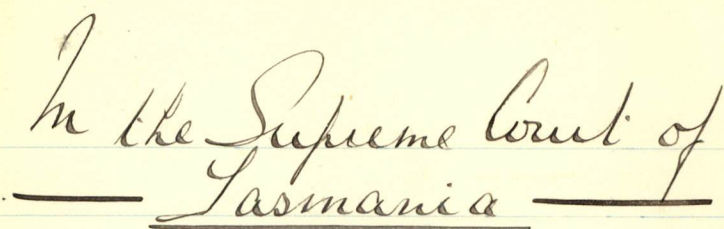 In the Supreme Court of
Tasmania